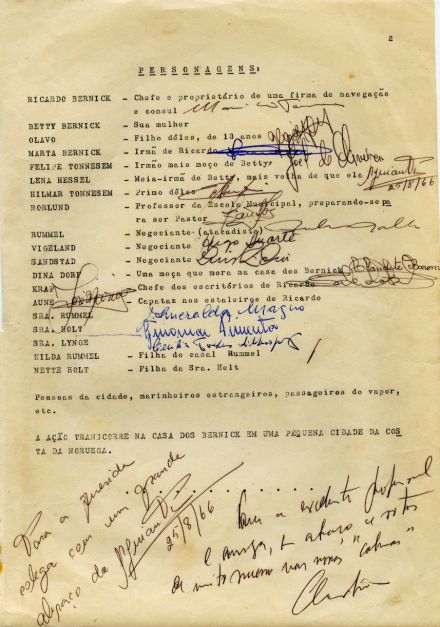 2
PERSONAGENS:
RICARDO BERNICK - Chefe e proprietário de uma firma de navegação
e consul
BETTY BERNICK - Sua mulher
OLAVO - Filho dêles, de 13 anos
MARTA BERNICK - Irmã de Ricardo
FELIPE TONNESEM - Irmão mais moço de Betty
LENA HESSEL - Meia-irmã de Betty, mais velha de que ela
25/8/66
HILMAR TONNESEM - Primo dêles
RORLUND - Professor da Escola Municipal, preparando-se pa
ra ser Pastor
RUMMEL - Negociante (atacadista)
VIGELAND - Negociante
SANDSTAD - Negociante
DINA DORF - Uma moça que mora na casa dos Bernick
KRAP - Chefe dos escritórios de Ricardo
AUNE - Capataz nos estaleiros de Ricardo
SRA. RUMMEL
SRA. HOLT
SRA. LYNGE
HILDA RUMMEL - Filha do casal Rummel
NETTE HOLT - Filha da Sra. Holt
Pessoas da cidade, marinheiros estrangeiros, passageiros de vapor,
etc.
A AÇÃO TRANSCORRE NA CASA DOS BERNICK EM UMA PEQUENA CIDADE DA COS
TA DA NORUEGA.
Para a querida
colega com um grande
abraço da
25/8/66
Para a excelente profissional
e amiga, um abraço e votos
de muito sucesso nas novas